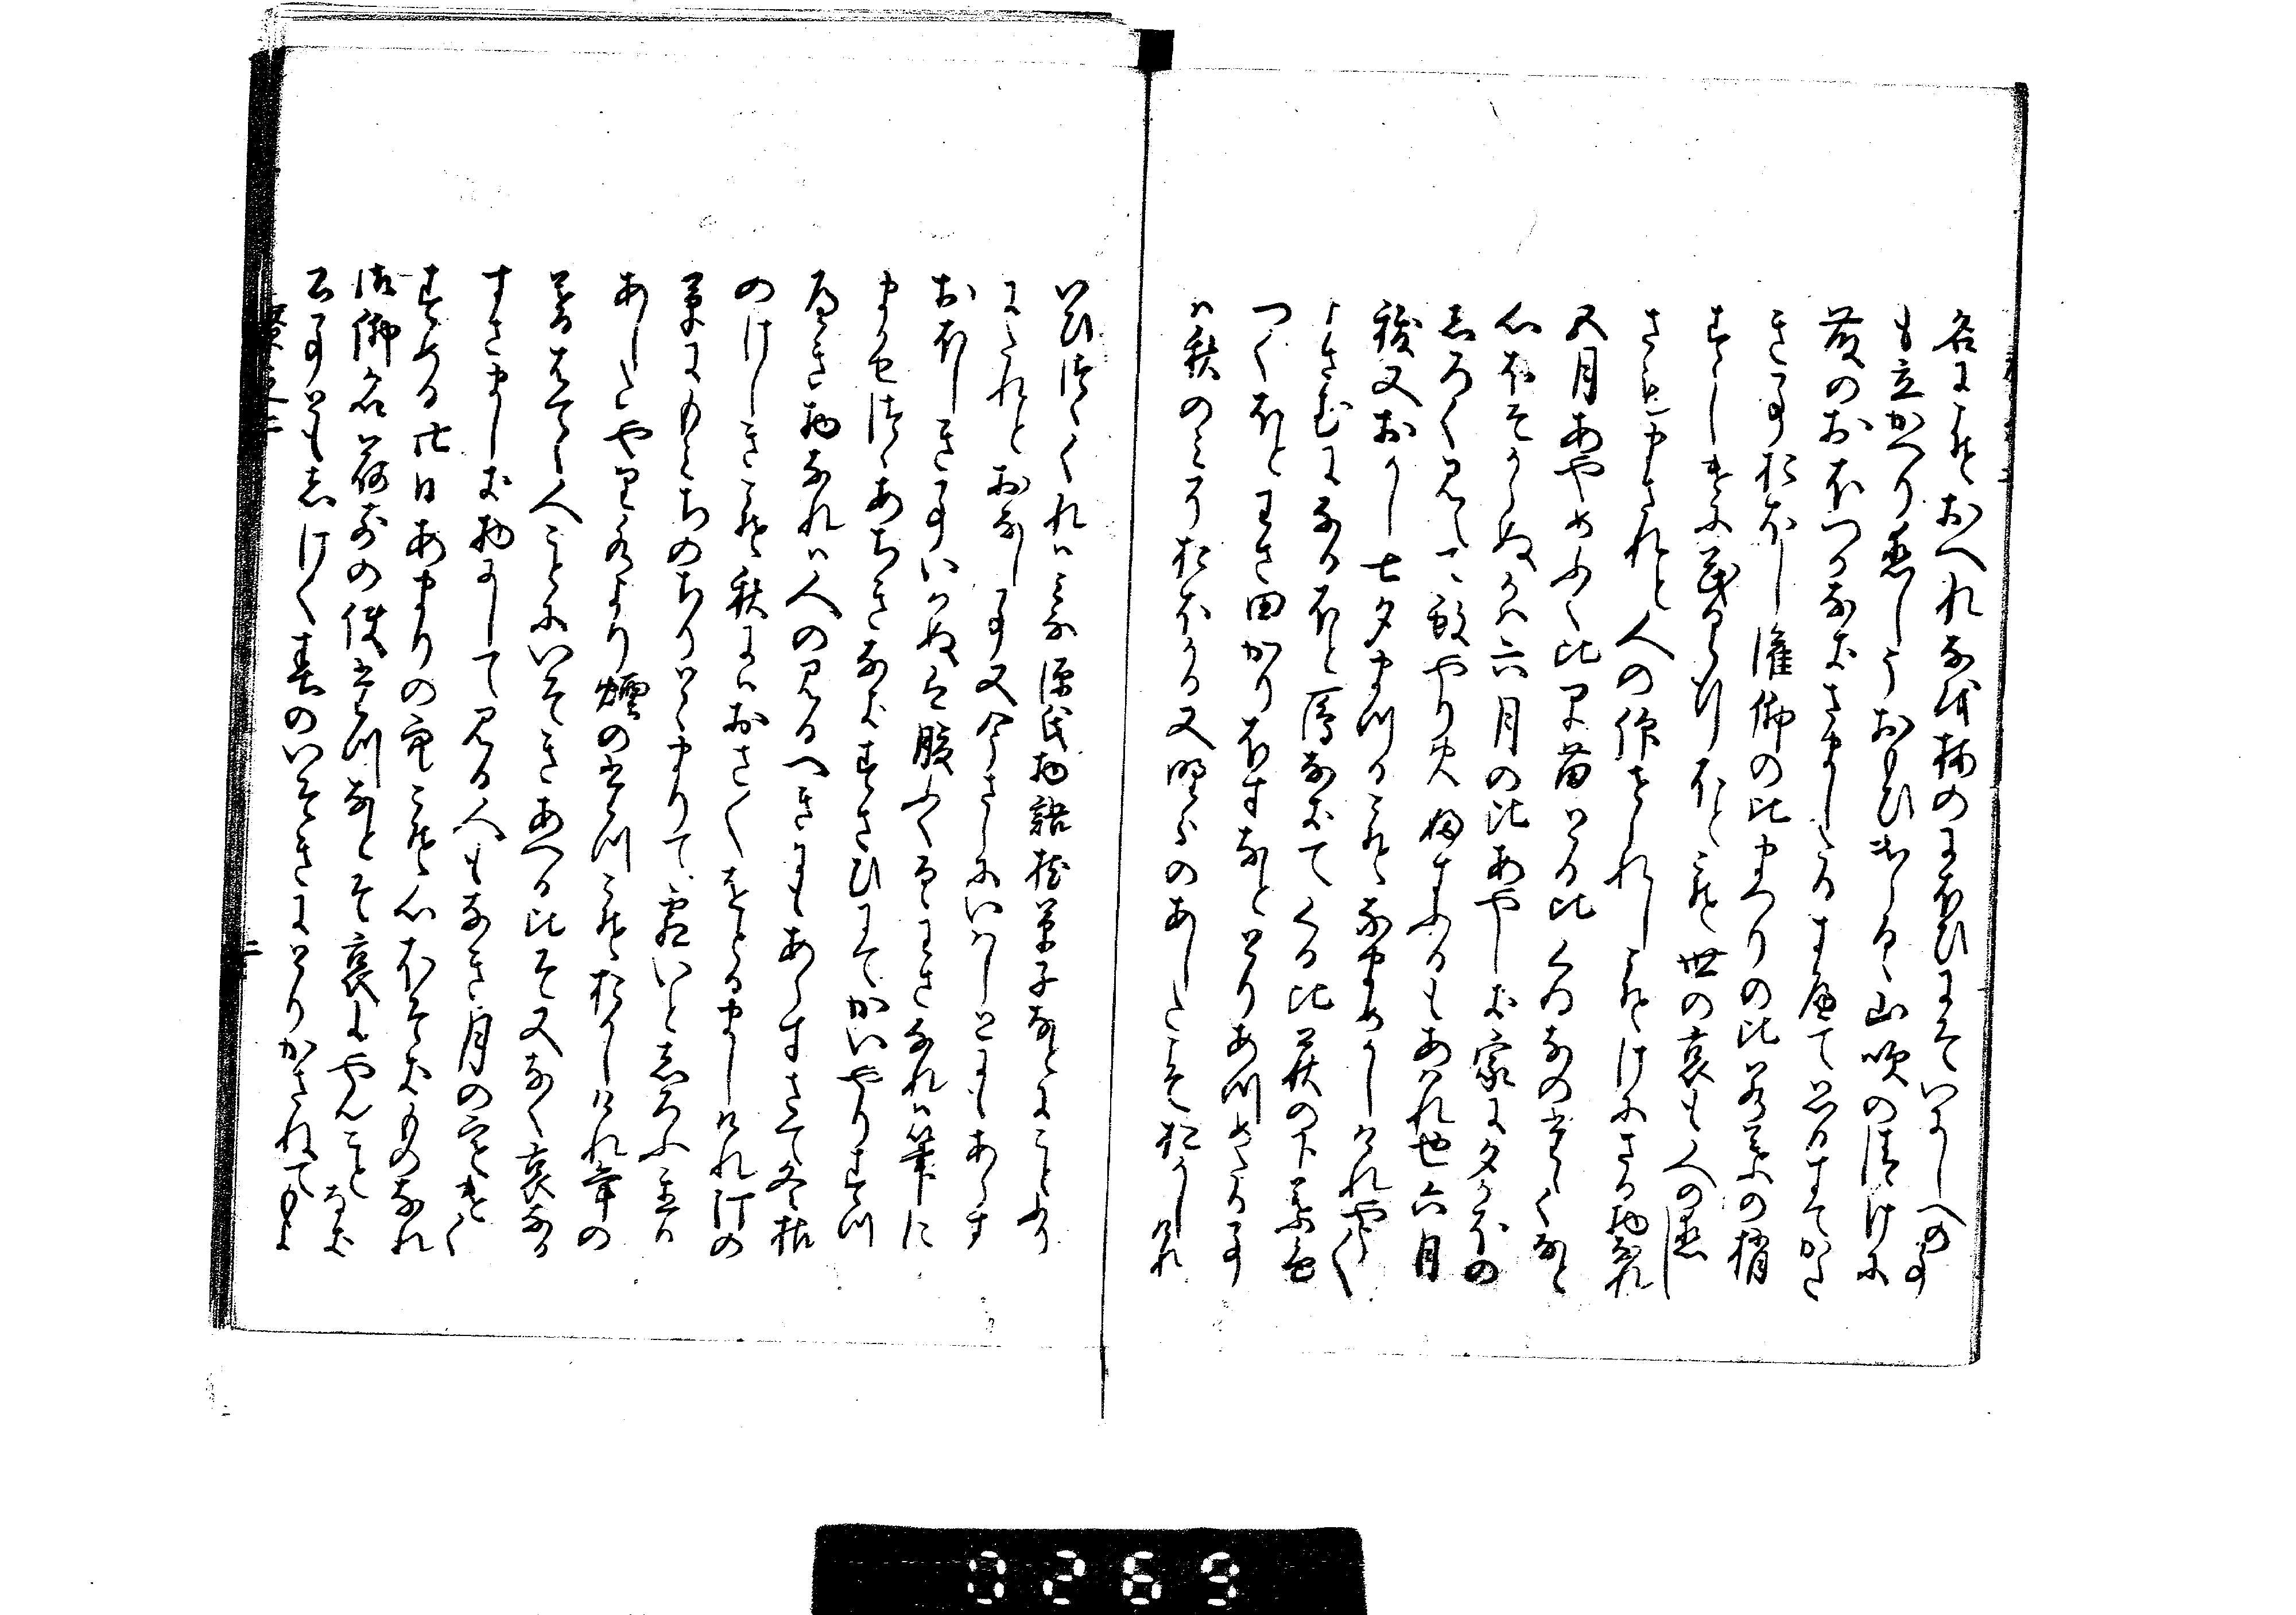 名にこそおへれなを梅のにほひにそいにしへの事
も立かへり恋しうおもひ出らるゝ山吹の清けに
藤のおほつかなきさましたるすへて思ひすてかた
き事おほし灌仏の比まつりの比若葉の梢
すゝしけに茂りゆくほとこそ世の哀も人の恋し
さもまされと人の仰せられしこそけにさる物なれ
五月あやめふく比早苗とる比くゐなのたゝくなと
心ほそからぬかは六月の比あやしき家に夕かほの
しろくみえて蚊やり火ふすふるもあはれ也六月
祓又おかし七夕まつるこそなまめかしけれやう〳〵
よさむになるほと雁なきてくる比萩の下葉色
つくほとわさ田かりほすなととりあつめたる事
は秋のみそおほかる又野分のあしたこそおかしけれ
いひつゝくれはみな源氏物語枕草子なとにことふり
にたれとおなし事又今さらにいはしとにもあらす
おほしき事いはぬは腹ふくるゝわさなれは筆に
まかせつゝあちきなきすさひにてかいやりすつ
へき物なれは人の見るへきにもあらすさて冬枯
のけしきこそ秋にはおさ〳〵をとるましけれ汀の
草にもみちのちりとゝまりて霜いとしろふ置る
あしたやり水より煙のたつこそおかしけれ年の
暮はてゝ人ことにいそきあへる比そ又なく哀なる
すさましき物にして見る人もなき月の寒けく
すめる廿日あまりの空こそ心ほそきものなれ
御仏名荷前の使立つなとそ哀にやんことなき
公事ともしけく春のいそきにとりかさねてもよ
二